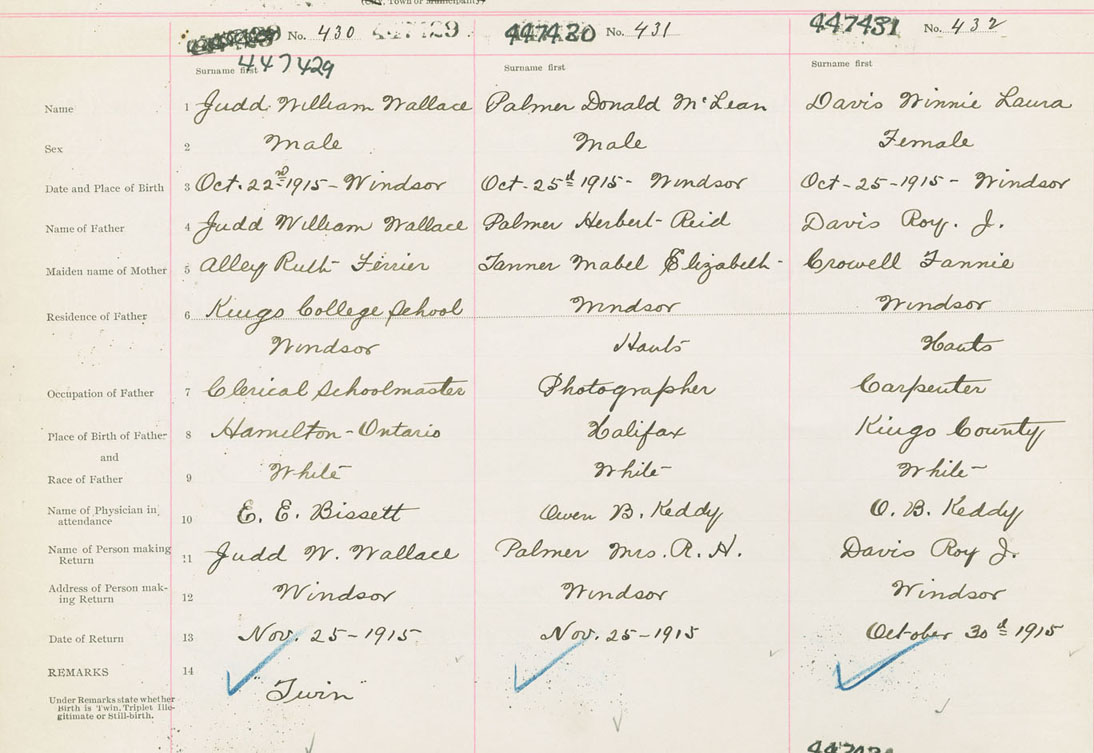 (City, Town or Municipality)
No. 430 447429 447430 No. 431 447431 No. 432
Surname first 447429 Surname first Surname first
Name 1 Judd William Wallace Palmer Donald McLean Davis Winnie Laura
Sex 2 Male Male Female
Date and Place of Birth 3 Oct. 22nd 1915 - Windsor Oct - 25d 1915 - Windsor Oct - 25 - 1915 - Windsor
Name of Father 4 Judd William Wallace Palmer Herbert Reid Davis Roy. J.
Maiden name of Mother 5 Alley Ruth Ferrier Tanner Mabel Elizabeth - Crowell Fannie
Residence of Father 6 Kings College School Windsor Windsor
Windsor Hants Hants
Occupation of Father 7 Clerical Schoolmaster Photographer Carpenter
Place of Birth of Father 8 Hamilton - Ontario Halifax Kings County
and
Race of Father 9 White White White
Name of Physician in attendance 10 E. E. Bissett Owen B. Keddy O. B. Keddy
Name of Person making Return 11 Judd W. Wallace Palmer Mrs. R. H. Davis Roy J.
Address of Person making Return 12 Windsor Windsor Windsor
Date of Return 13 Nov. 25 - 1915 Nov. 25 - 1915 October 30d 1915
REMARKS 14
"Twin"
Under Remarks state whether
Birth is Twin, Triplet Ille-
gitimate or Still-birth.